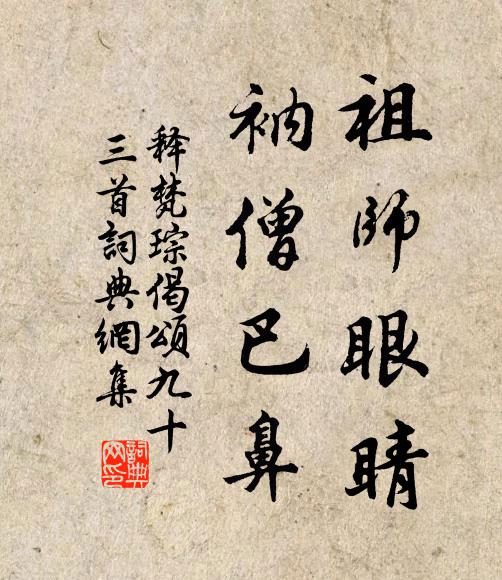 祖師眼睛
衲僧巴鼻
释梵琮偈頌九十
三首詞典網集
詞典
网印